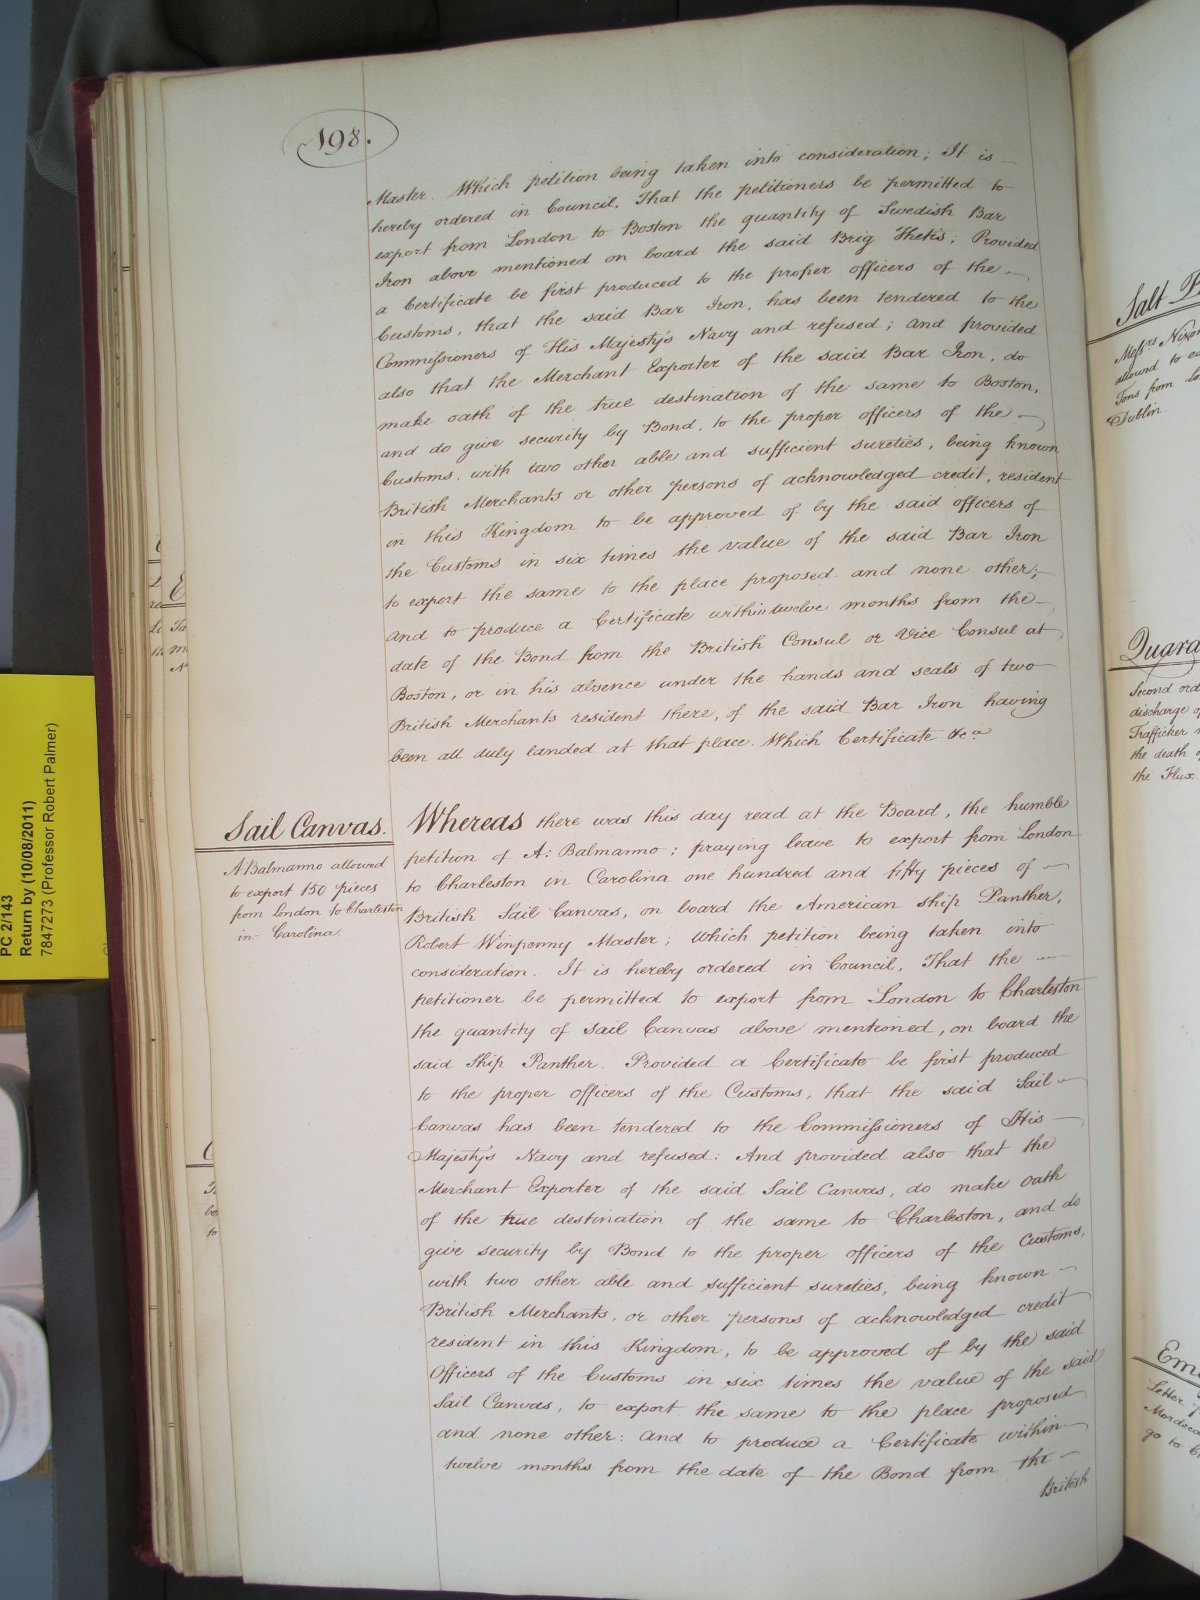 198.
Master. Which petition being taken into consideration; It is
hereby ordered in Council, That the petitioners be permitted to
export from London to Boston the quantity of Swedish Bar
Iron above mentioned on board the said Brig Thetis; Provided
a Certificate be first produced to the proper officers of the
Customs, that the said Bar Iron, has been tendered to the
Commissioners of His Majesty's Navy and refused; and provided
also that the Merchant Exporter of the said Bar Iron, do
make oath of the true destination of the same to Boston,
and do give security by Bond, to the proper officers of the
Customs, with two other able and sufficient sureties, being known
British Merchants or other persons of acknowledged credit, resident
in this Kingdom to be approved of by the said officers of
the Customs in six times the value of the said Bar Iron
to export the same to the place proposed and none other;
And to produce a Certificate within twelve months from the
date of the Bond from the British Consul or Vice Consul at
Boston, or in his absence under the hands and seals of two
British Merchants resident there, of the said Bar Iron having
been all duly landed at that place. Which Certificate &ca
Sail Canvas.
A Balmanno allowed
to export 150 pieces
from London to Charleston
in Carolina.
Whereas there was this day read at the Board, the humble
petition of A: Balmanno; praying leave to export from London
to Charleston in Carolina one hundred and fifty pieces of
British Sail Canvas, on board the American ship Panther,
Robert Winpenny Master; which petition being taken into
consideration. It is hereby ordered in Council, That the
petitioner be permitted to export from London to Charleston
the quantity of Sail Canvas above mentioned, on board the
said Ship Panther. Provided a Certificate be first produced
to the proper officers of the Customs, that the said Sail
Canvas has been tendered to the Commissioners of His
Majesty's Navy and refused: And provided also that the
Merchant Exporter of the said Sail Canvas, do make Oath
of the true destination of the same to Charleston, and do
give security by Bond to the proper officers of the Customs,
with two other able and sufficient sureties, being known
British Merchants, or other persons of acknowledged credit
resident in this Kingdom, to be approved of by the said
Officers of the Customs in six times the value of the said
Sail Canvas, to export the same to the place proposed
and none other: And to produce a Certificate within
twelve months from the date of the Bond from the
British
PC 2/143
Return by (10/08/2011)
7847273 (Professor Robert Palmer)
Salt
Messrs
allowed to
Tons from
Dublin.
Second
discharge
Trafficker
the death
the Flux.
Letter
go to